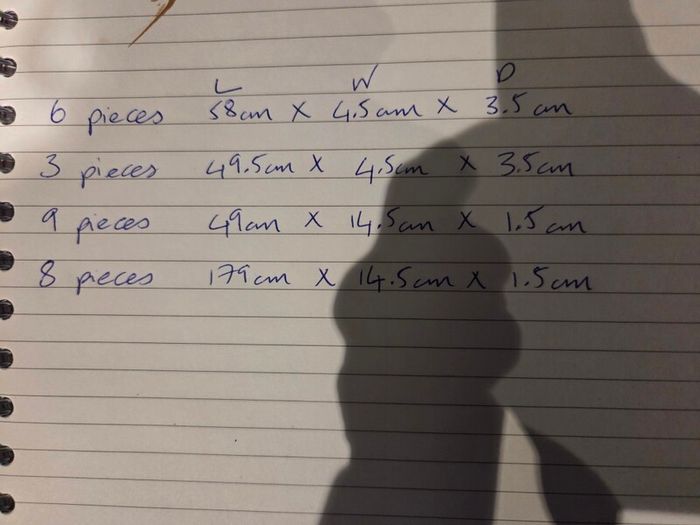 L W D
6 pieces 58cm X 4.5cm X 3.5cm
3 pieces 49.5cm X 4.5cm X 3.5cm
9 pieces 49cm X 14.5cm X 1.5cm
8 pieces 179cm X 14.5cm X 1.5cm